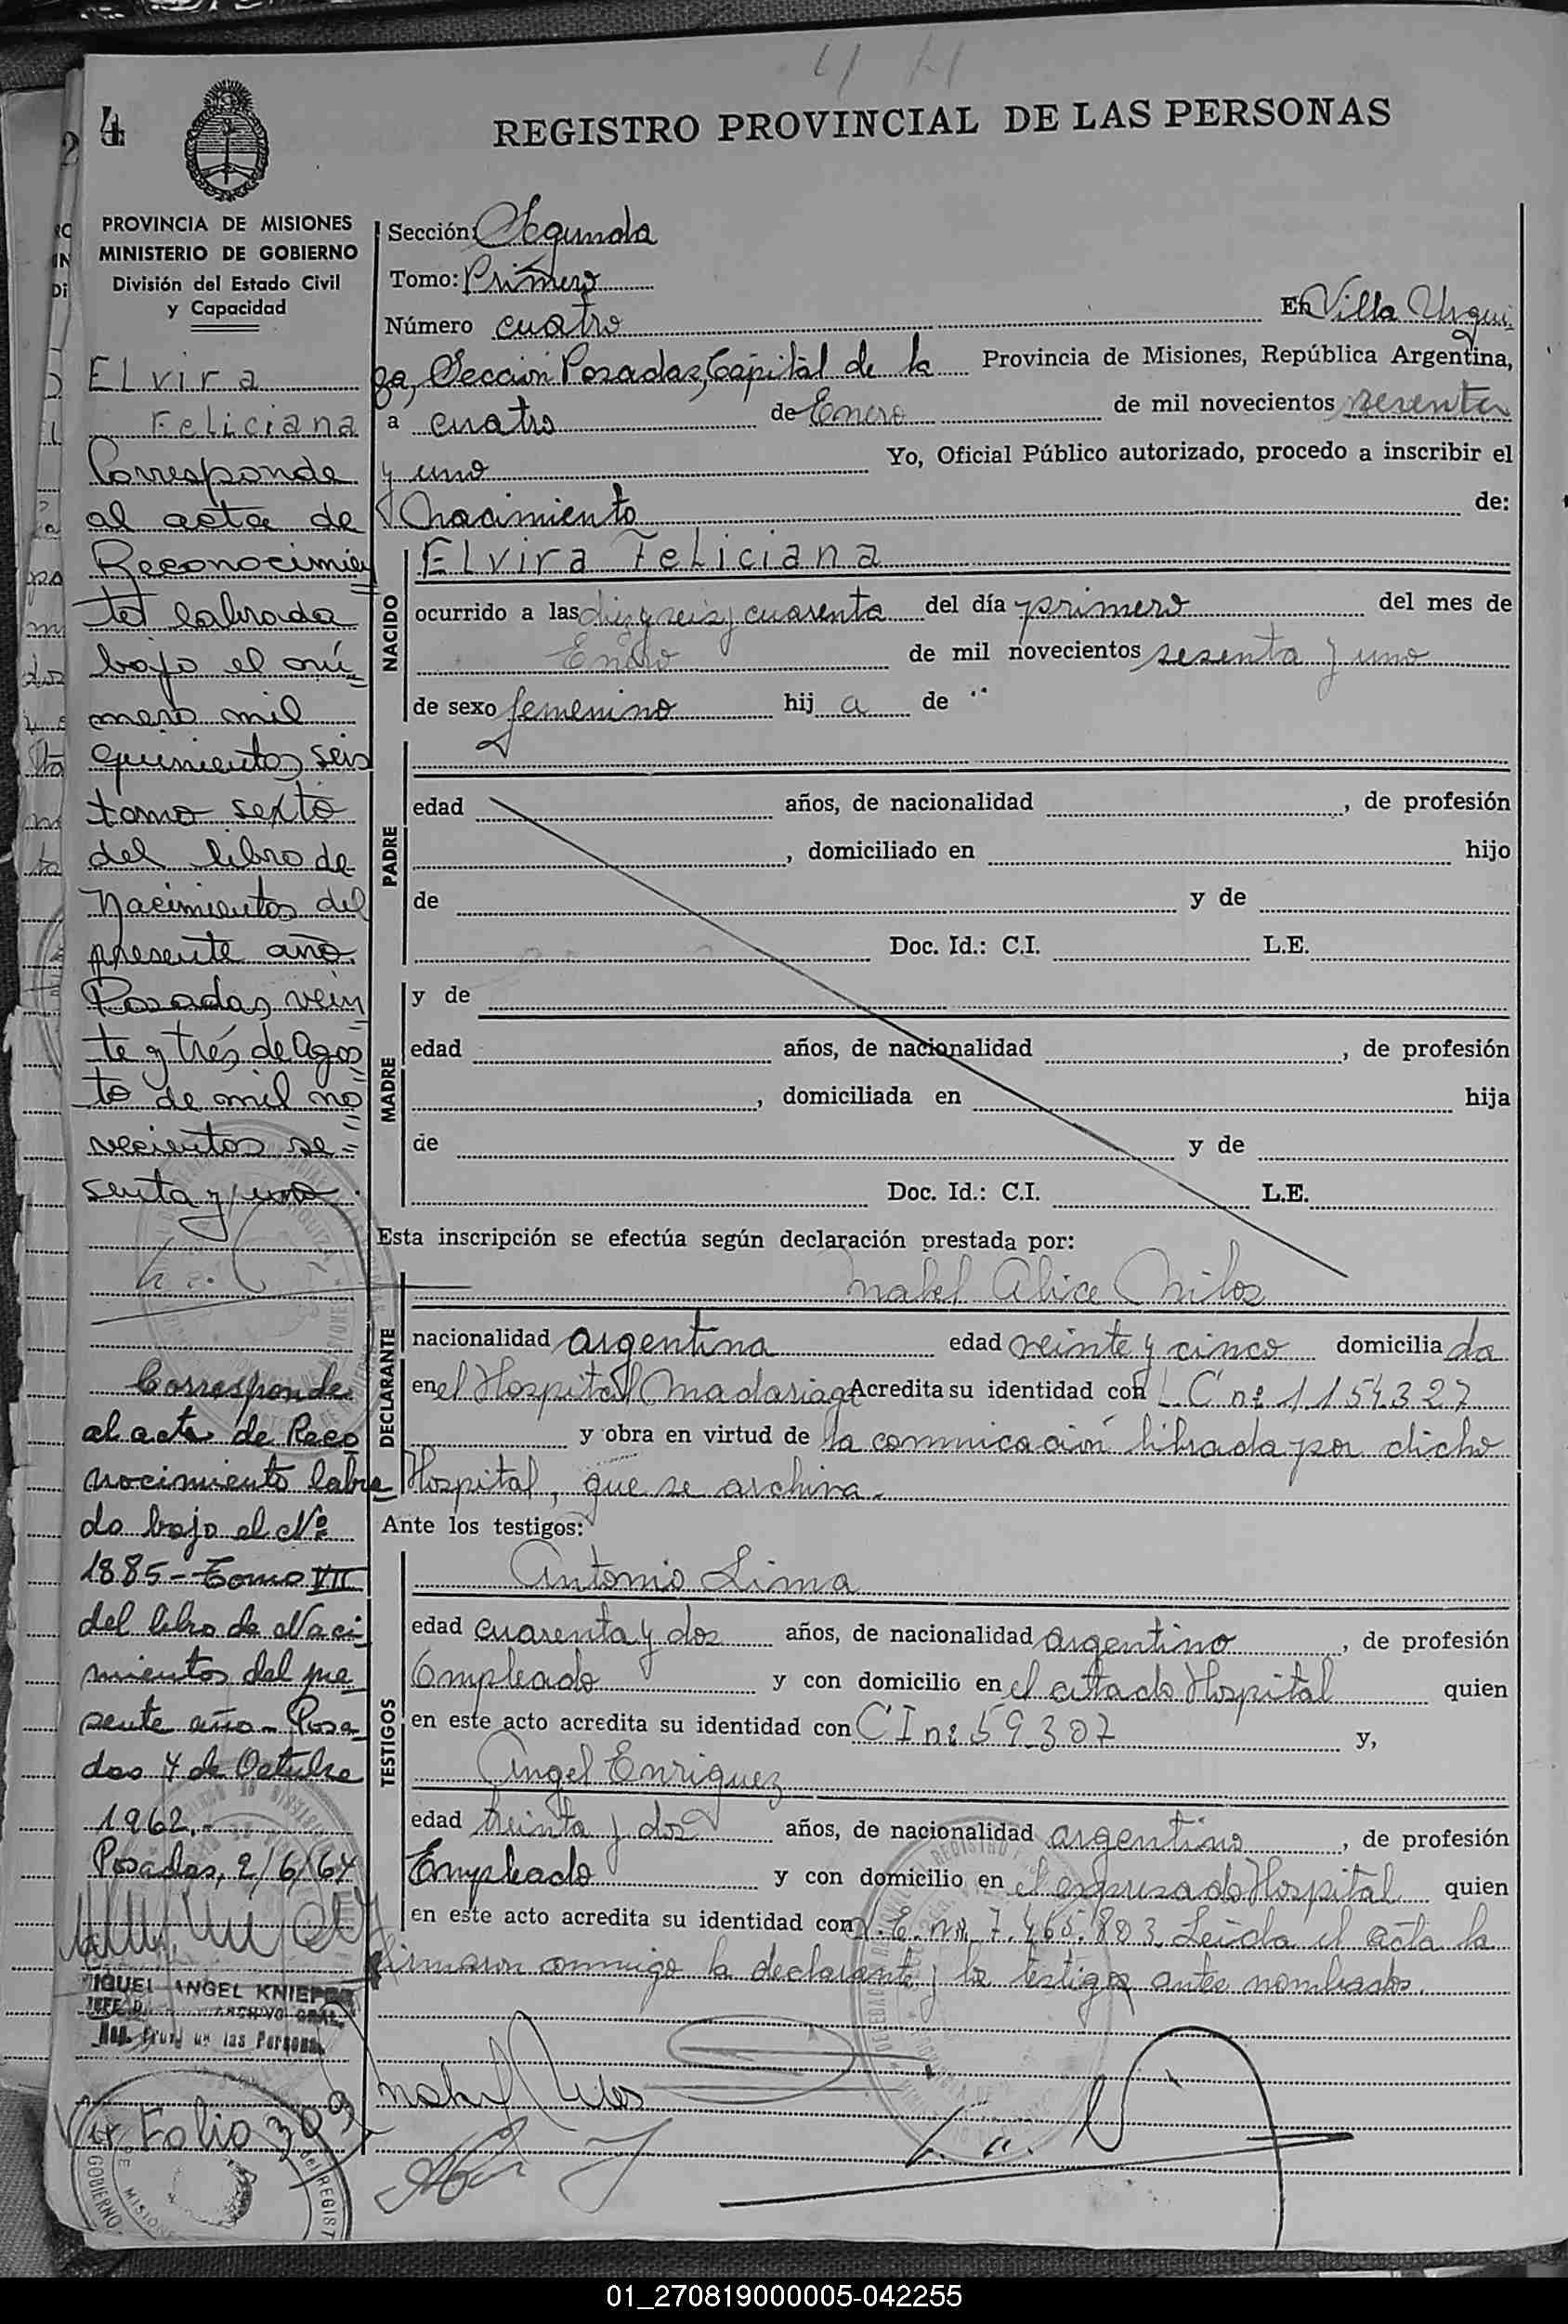 4 4
4
REGISTRO PROVINCIAL DE LAS PERSONAS
PROVINCIA DE MISIONES
MINISTERIO DE GOBIERNO
División del Estado Civil
y Capacidad
Elvira
Feliciana
Corresponde
al acta de
Reconocimien
to labrada
bajo el nú
mero mil
quinientos seis
tomo sexto
del libro de
Nacimientos del
presente año.
Posadas, vein
te y trés de Agos
to de mil no
vecientos se=
senta y uno.
Corresponde
al acta de Reco
nocimiento labra
do bajo el Nº
1885 - Tomo VII
del libro de Naci
mientos del pre
sente año - Posa
das 4 de Octubre
1962.-
Posadas, 2/6/64
MIGUEL ANGEL KNIEPP
Ver Folio 309
Sección: Segunda
Tomo: Primero
Número cuatro En Villa Urqui
za, Sección Posadas, Capital de la Provincia de Misiones, República Argentina,
a cuatro de Enero de mil novecientos sesenta
y uno Yo, Oficial Público autorizado, procedo a inscribir el
Nacimiento de:
NACIDO
Elvira Feliciana
ocurrido a las diez y seis y cuarenta del día primero del mes de
Enero de mil novecientos sesenta y uno
de sexo femenino hij a de "
PADRE
edad años, de nacionalidad , de profesión
, domiciliado en hijo
de y de
Doc. Id.: C.I. L.E.
MADRE
y de
edad años, de nacionalidad , de profesión
, domiciliada en hija
de y de
Doc. Id.: C.I. L.E.
Esta inscripción se efectúa según declaración prestada por:
DECLARANTE
Mabel Alice Milos
nacionalidad argentina edad veinte y cinco domicilia da
en el Hospital Madariaga Acredita su identidad con L.C nº 1.154.327
y obra en virtud de la comunicación librada por dicho
Hospital, que se archiva.
Ante los testigos:
TESTIGOS
Antonio Lima
edad cuarenta y dos años, de nacionalidad argentino , de profesión
Empleado y con domicilio en el citado Hospital quien
en este acto acredita su identidad con C I nº 59.307 y,
Angel Enriquez
edad treinta y dos años, de nacionalidad argentino , de profesión
Empleado y con domicilio en el expresado Hospital quien
en este acto acredita su identidad con L.E. nº 7.465.803. Leída el acta la
firmaron conmigo la declarante y los testigos antes nombrados.
01_270819000005-042255